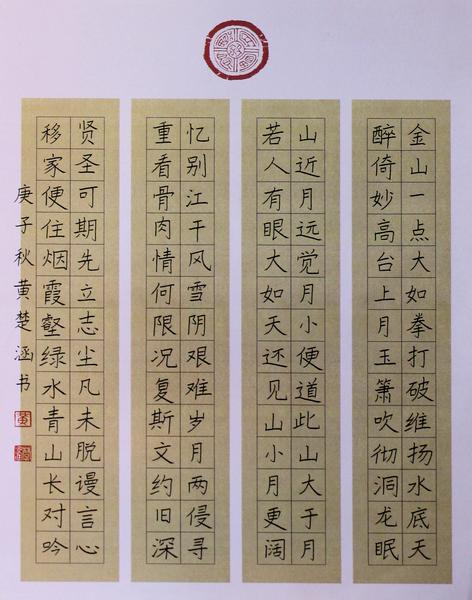 金山一点大如拳打破维扬水底天
醉倚妙高台上月玉箫吹彻洞龙眠
山近月远觉月小便道此山大于月
若人有眼大如天还见山小月更阔
忆别江干风雪阴艰难岁月两侵寻
重看骨肉情何限况复斯文约旧深
贤圣可期先立志尘凡未脱谩言心
移家便住烟霞壑绿水青山长对吟
庚子秋黄楚涵书